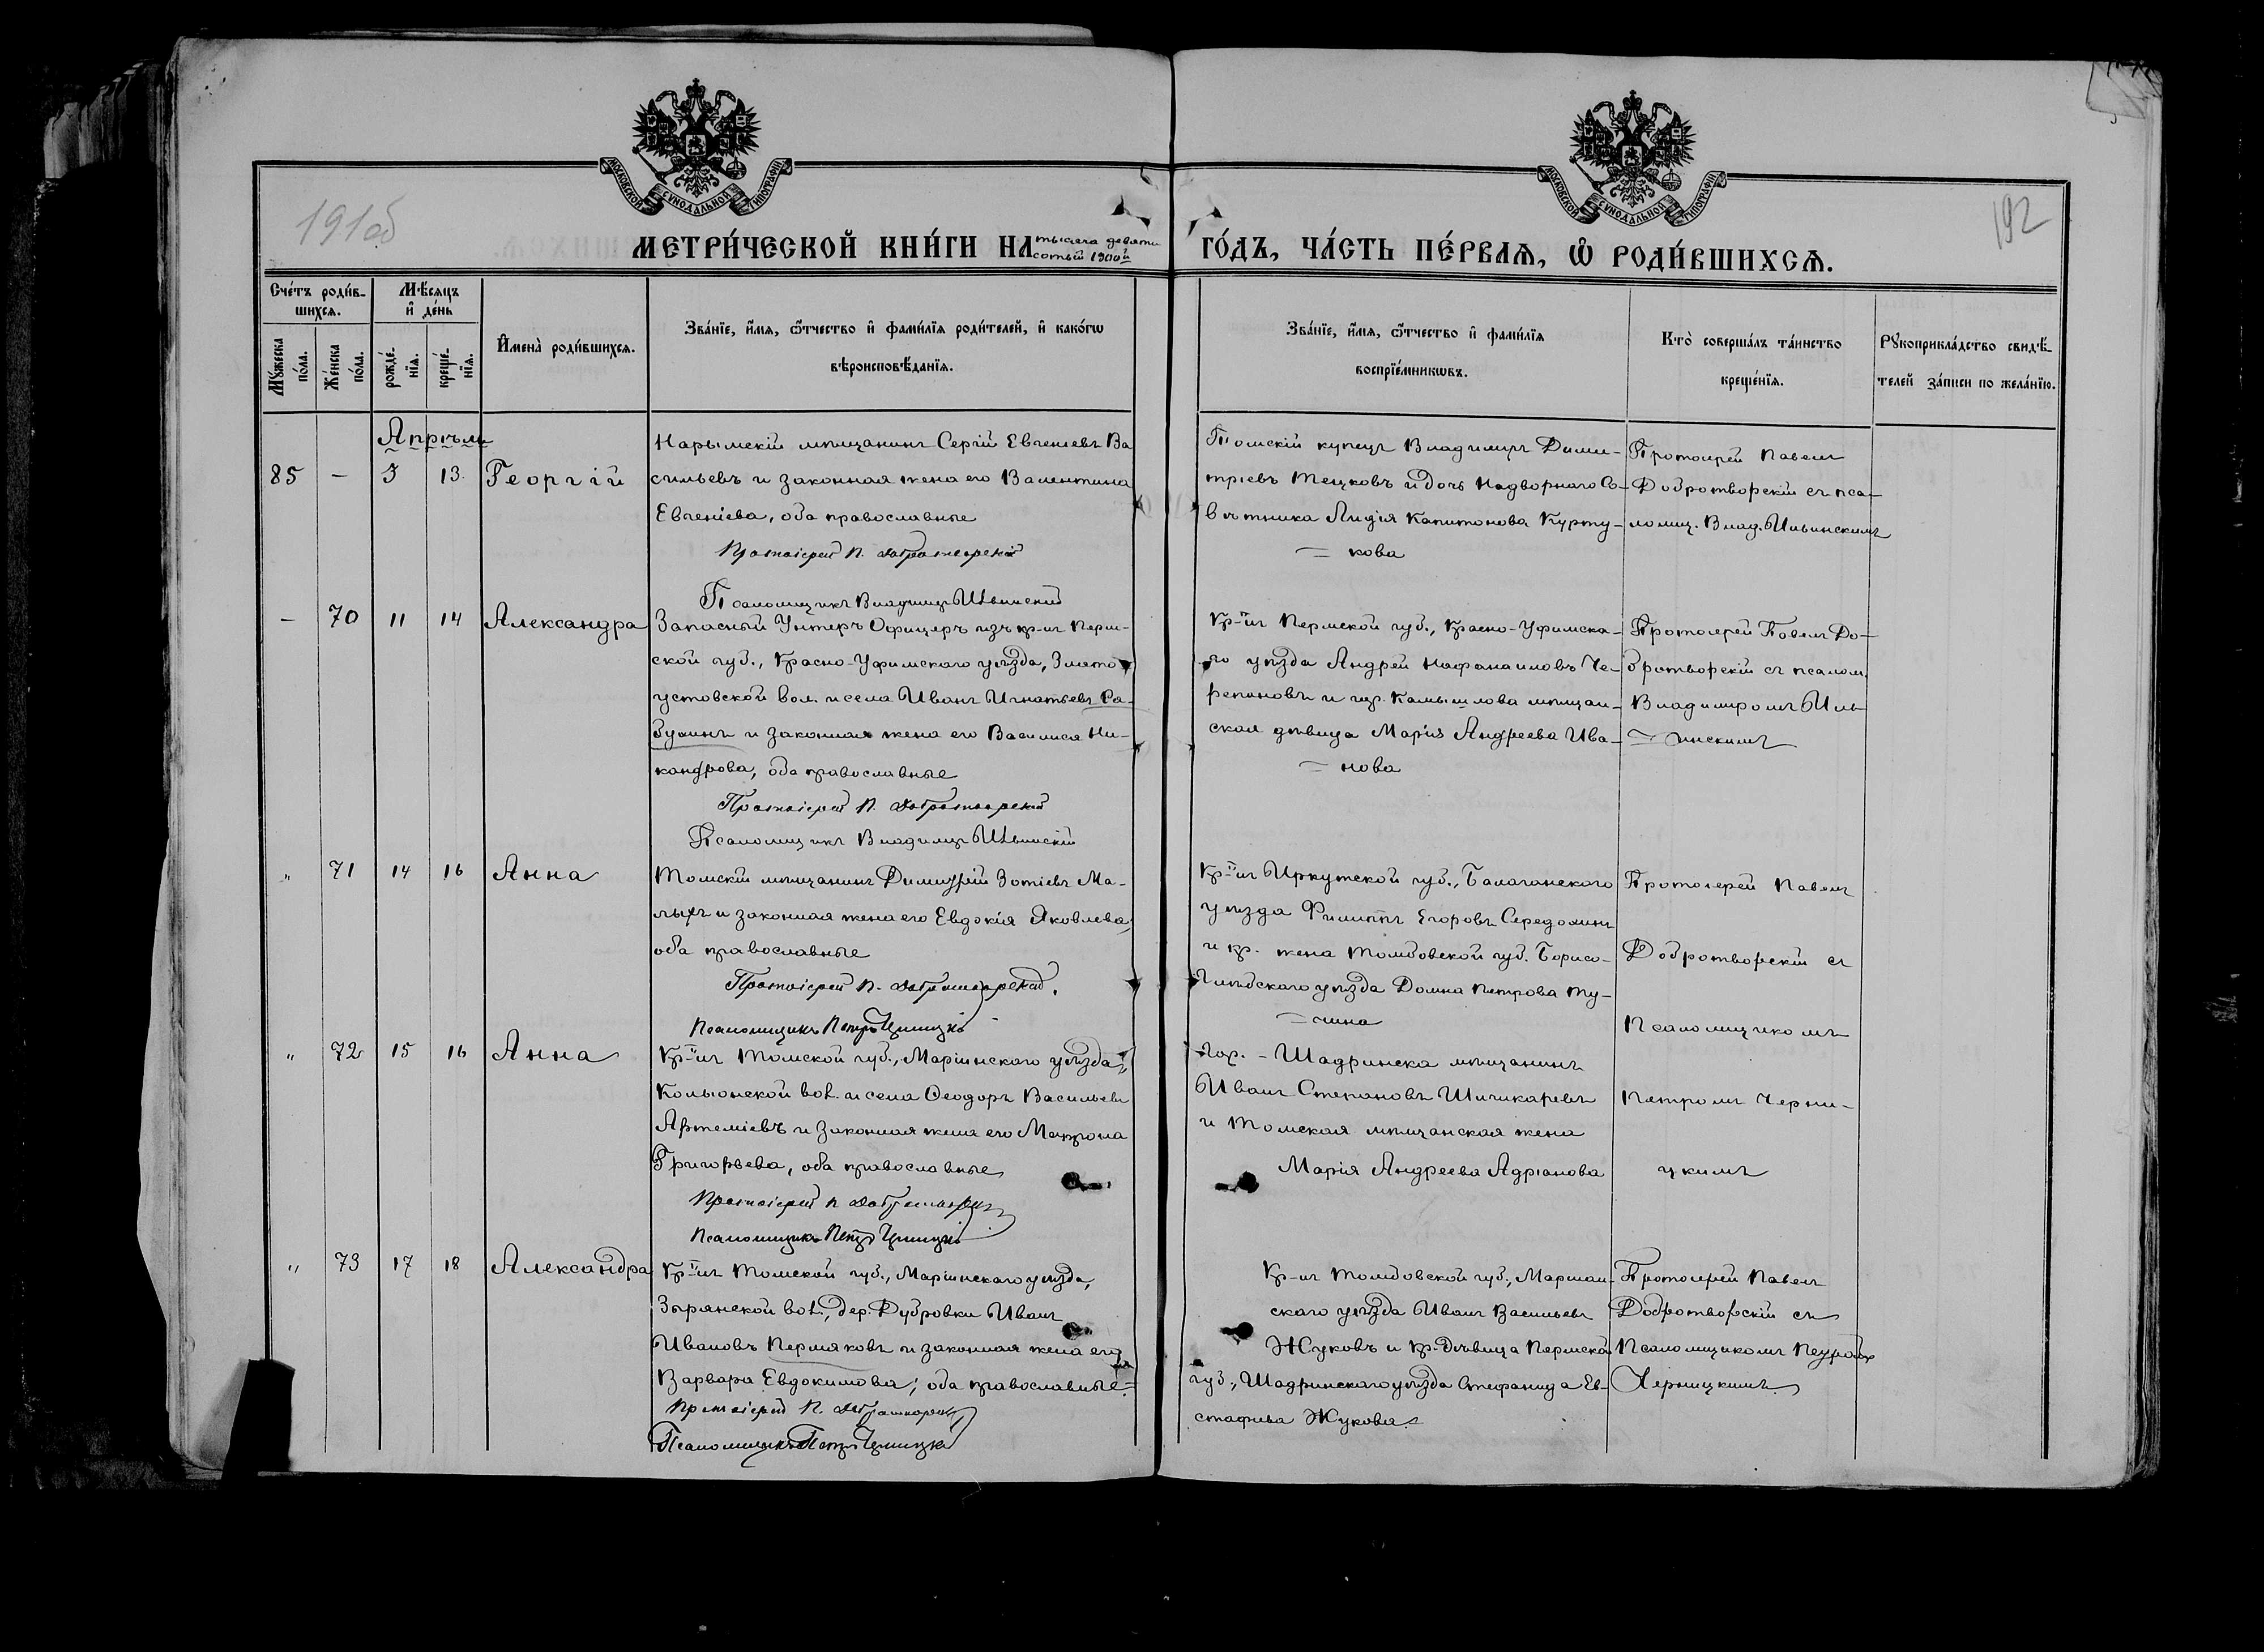 МОСКОВСКОЙ СѴНОДАЛЬНОЙ ТИПОГРАФІИ
МОСКОВСКОЙ СѴНОДАЛЬНОЙ ТИПОГРАФІИ
191об
192
МЕТРИ́ЧЕСКОЙ КНИ́ГИ НА тысяча девяти
сотый 1900й
ГО́ДЪ, ЧА́СТЬ ПЕ́РВАѦ, Ѡ҆ РОДИ́ВШИХСѦ.
Сче́тъ роди́в-
шихсѧ.
Мꙋ́жеска
по́ла.
Же́нска
по́ла.
Мѣ́сѧцъ
и҆ де́нь
рожде́-
нїѧ.
креще́-
нїѧ.
И҆мена̀ роди́вшихсѧ.
Зва́нїе, и҆́мѧ, ѻ҆́тчество и҆ фами́лїѧ роди́телей, и҆ како́гѡ
вѣроисповѣ́данїѧ.
Зва́нїе, и҆́мѧ, ѻ҆́тчество и҆ фами́лїѧ
воспрїе́мникѡвъ.
Кто̀ соверша́лъ та́инство
креще́нїѧ.
Рꙋкоприкла́дство свидѣ́-
телей за́писи по жела́нїю.
Апрѣль
85 — 3 13 Георгій
Нарымскій мѣщанинъ Сергій Евгеніевъ Ва
сильевъ и законная жена его Валентина
Евгеніева, оба православные
Протоіерей П. Добротворскій
Псаломщикъ Владиміръ Ильинскій
Томскій купецъ Владиміръ Дими-
тріевъ Тецковъ и дочь Надворнаго Со-
вѣтника Лидія Капитонова Курту-
кова
Протоіерей Павелъ
Добротворскій съ пса-
ломщ. Влад. Ильинскимъ
— 70 11 14 Александра
Запасный Унтеръ Офицеръ изъ кр-нъ Перм-
ской губ., Красно-Уфимскаго уѣзда, Злато
устовской вол. и села Иванъ Игнатьевъ
и законная жена его Василиса Ни-
кандрова, оба православные
Протоіерей П. Добротворскій
Псаломщикъ Владиміръ Ильинскій
Кр-нъ Пермской губ., Красно-Уфимска-
го уѣзда Андрей Нафанаиловъ Че-
репановъ и гор. Камышлова мѣщан-
ская дѣвица Марія Андреева Ива-
нова
Протоіерей Павелъ До-
бротворскій съ псалом.
Владиміромъ Иль-
инскимъ
„ 71 14 16 Анна
Томскій мѣщанинъ Димитрій Зотіевъ Ма-
лыхъ и законная жена его Евдокія Яковлева,
оба православные
Протоіерей П. Добротворскій.
Псаломщикъ Петръ Черницкій
Кр-нъ Иркутской губ., Балаганскаго
уѣзда Филиппъ Егоровъ Середкинъ
и кр. жена Тамбовской губ. Борисо-
глѣбскаго уѣзда Домна Петрова
Протоіерей Павелъ
Добротворскій съ
Псаломщикомъ
Петромъ Черни-
цкимъ
„ 72 15 16 Анна
Кр-нъ Томской губ., Маріинскаго уѣзда,
Колыонской вол. и села Ѳеодоръ Васильевъ
Артеміевъ и законная жена его Матрона
Григорьева, оба православные
Протоіерей П. Добротворскій
Псаломщикъ Петръ Черницкій
Гор. Шадринска мѣщанинъ
Иванъ Степановъ Шишкаревъ
и Томская мѣщанская жена
Марія Андреева Адріанова
„ 73 17 18 Александра
Кр-нъ Томской губ., Маріинскаго уѣзда,
Зырянской вол., дер. Дубровки Иванъ
Ивановъ Пермяковъ и законная жена его
Варвара Евдокимова; оба православные
Протоіерей П. Добротворскій
Псаломщикъ Петръ Черницкій
Кр-нъ Тамбовской губ., Моршан-
скаго уѣзда Иванъ Васильевъ
Жуковъ и кр. дѣвица Пермской
губ., Шадринскаго уѣзда Стефанида Ев-
стафьева Жукова.
Протоіерей Павелъ
Добротворскій съ
Псаломщикомъ Петромъ
Черницкимъ